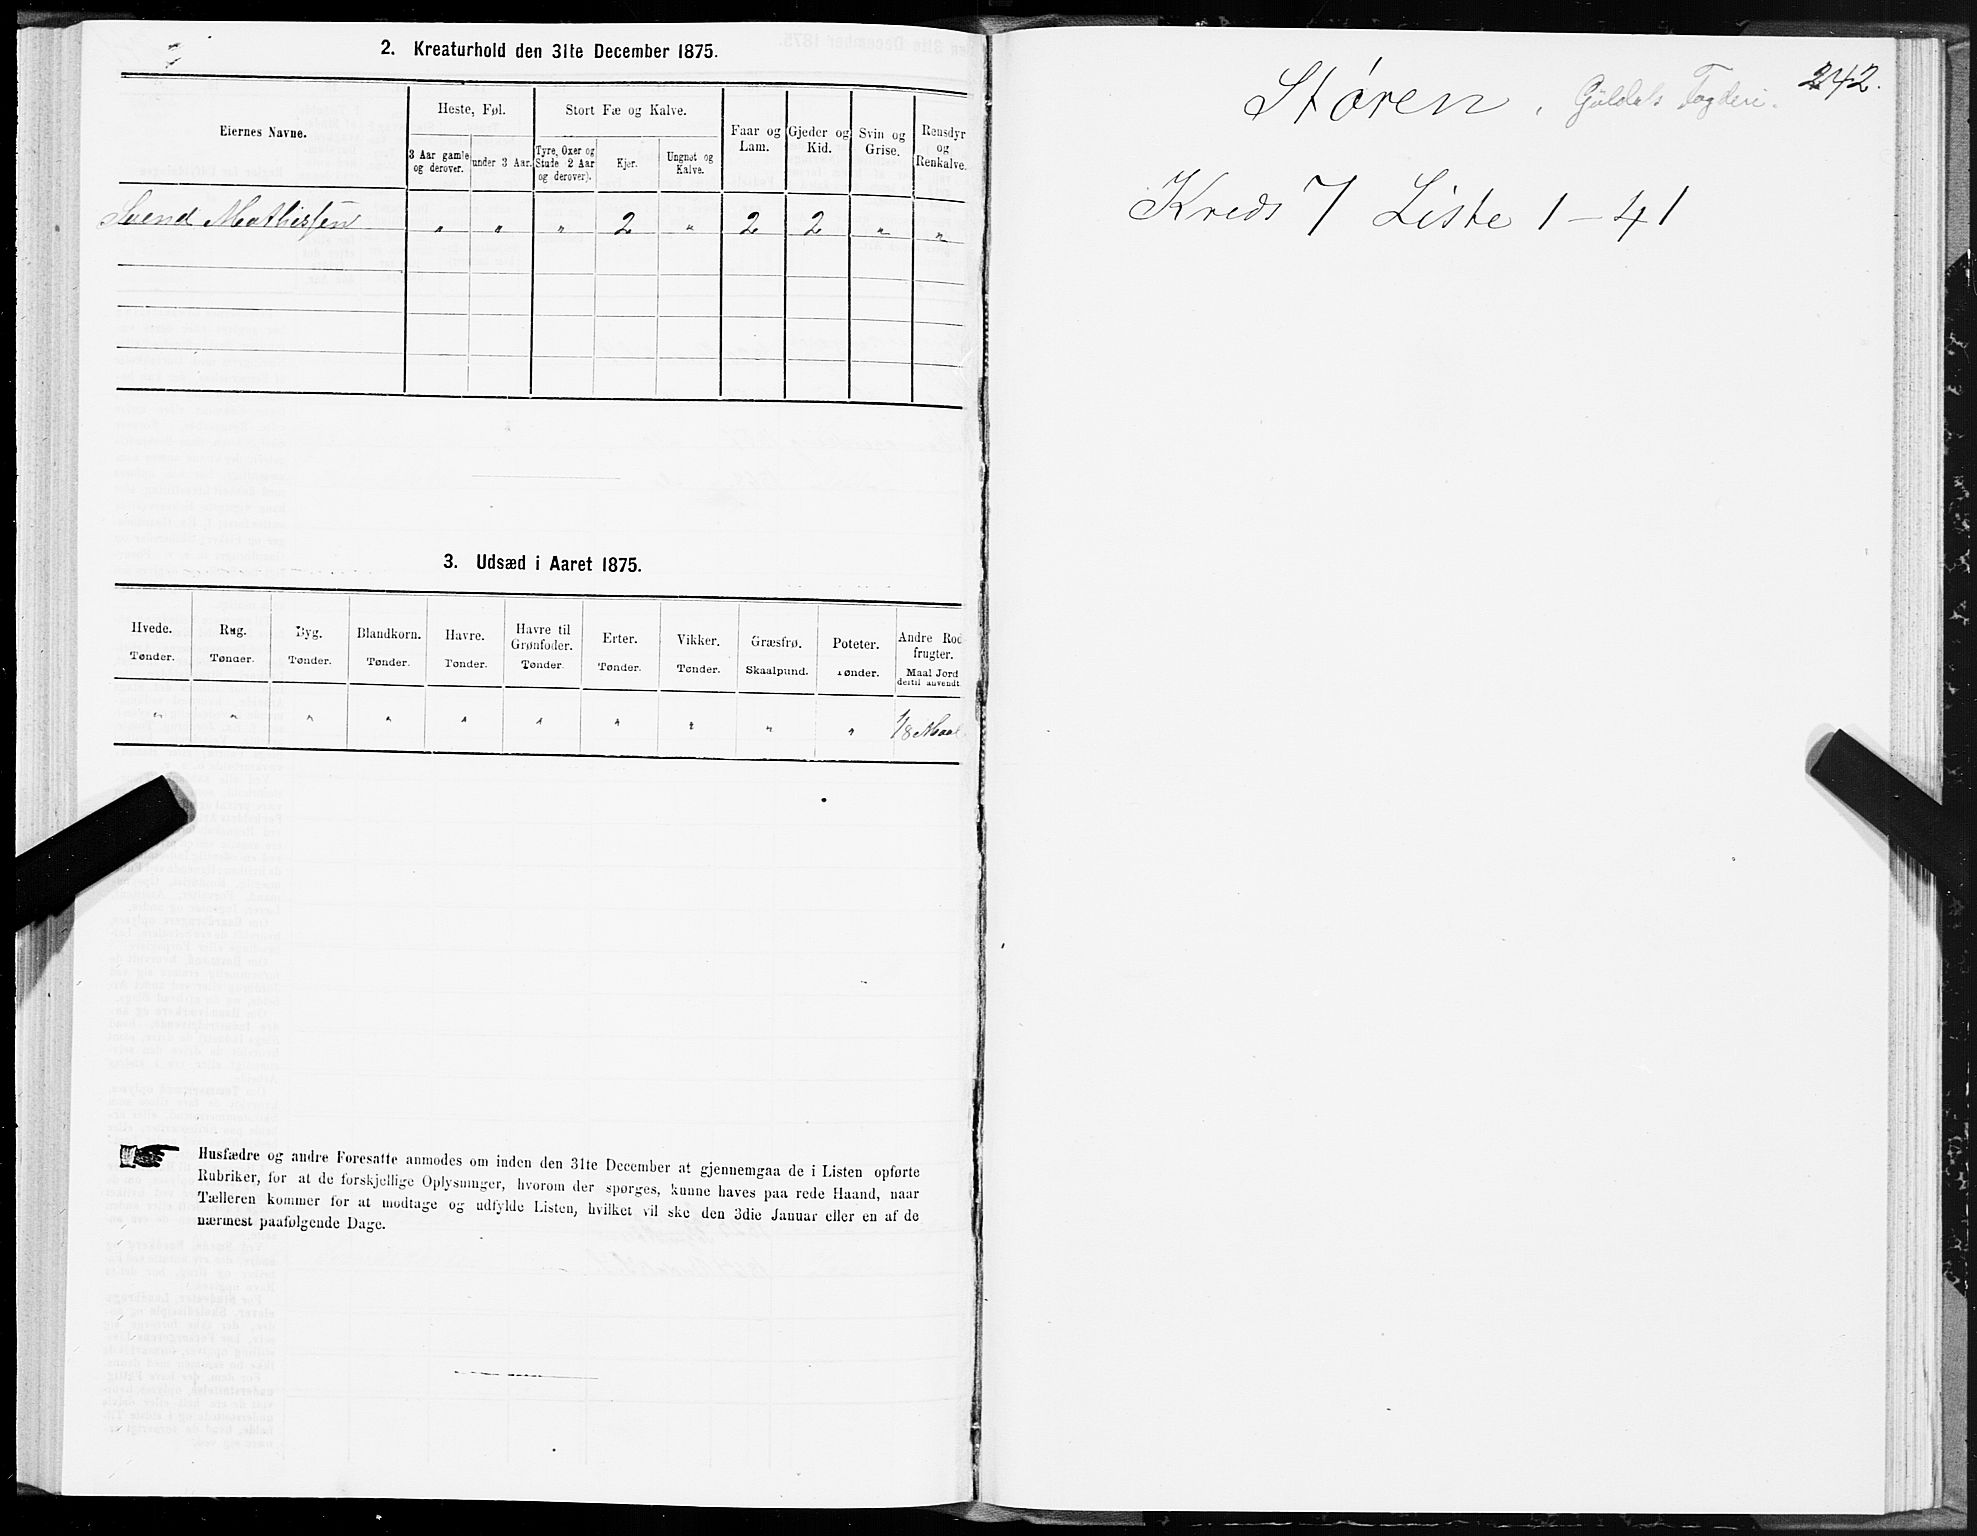 2. Kreaturhold den 31te December 1875.
Eiernes Navne.
Heste, Føl.
Stort Fæ og Kalve.
Faar og Lam.
Gjeder og Kid.
Svin og Grise.
Rensdyr og Renkalve.
3 Aar gamle og derover.
under 3 Aar.
Tyre, Oxer og Stude 2 Aar og derover).
Kjør.
Ungnøt og Kalve.
Svend Mathissen " " " 2 " 2 2 " "
3. Udsæd i Aaret 1875.
Hvede. Tønder.
Rug. Tønder.
Byg. Tønder.
Blandkorn. Tønder.
Havre. Tønder.
Havre til Grønfoder. Tønder.
Erter. Tønder.
Vikker. Tønder.
Græsfrø. Skaalpund.
Poteter. Tønder.
Andre Rodfrugter. Maal Jord dertil anvendt.
" " " " " " " " " " 1/8 Maal
Husfædre og andre Foresatte anmodes om inden den 31te December at gjennemgaa de i Listen opførte
Rubriker, for at de forskjellige Oplysninger, hvorom der spørges, kunne haves paa rede Haand, naar
Tælleren kommer for at modtage og udfylde Listen, hvilket vil ske den 3die Januar eller en af de
nærmest paafølgende Dage.
242.
Støren, Guldals Fogderi.
Kreds 7 Liste 1-41